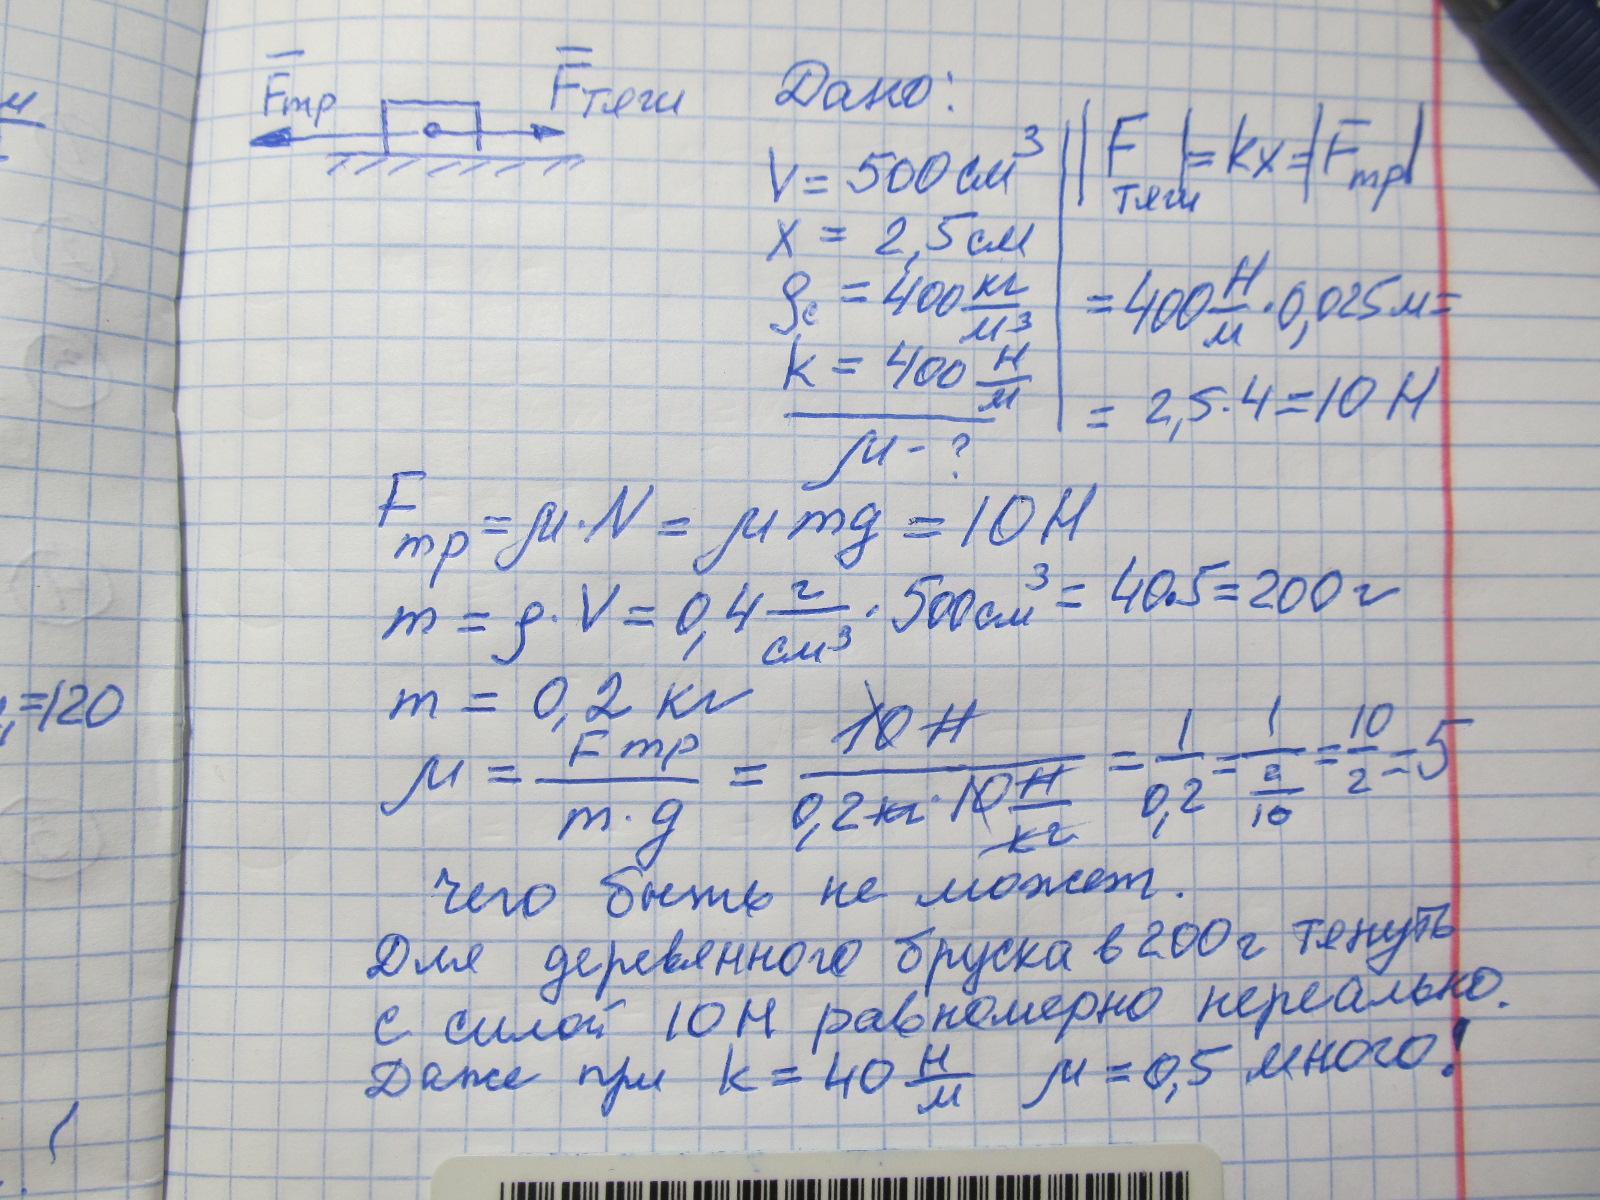 Fтр Fтяги Дано:
V = 500 см³ |Fтяги| = kx = |Fтр|
x = 2,5 см
ρс = 400 кг/м³ = 400 Н/м · 0,025 м =
k = 400 Н/м = 2,5 · 4 = 10 Н
μ - ?
Fтр = μ · N = μ mg = 10 Н
m = ρ · V = 0,4 г/см³ · 500 см³ = 40.5 = 200 г
m = 0,2 кг
μ = Fтр/(m · g) = 10 Н/(0,2 кг · 10 Н/кг) = 1/0,2 = 1/(2/10) = 10/2 = 5
чего быть не может.
Для деревянного бруска в 200 г тянуть
с силой 10 Н равномерно нереально.
Даже при k = 40 Н/м μ = 0,5 много!
=120